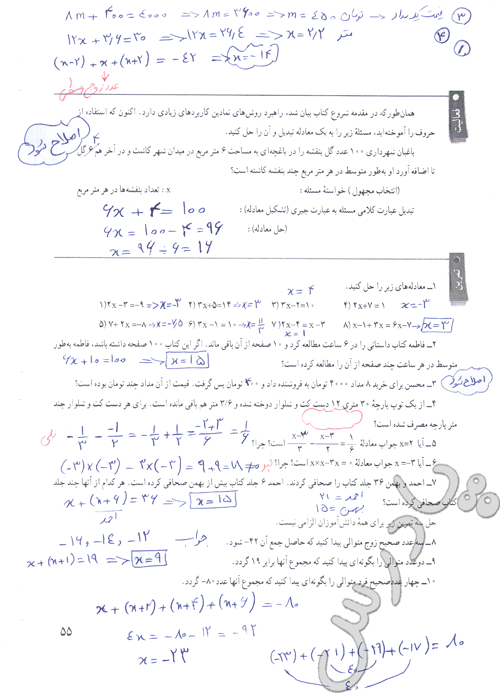 ③ قیمت یک مداد → تومان 8m + 400 = 4000 => 8m = 3600 => m = 450
④ متر 12x + 3,6 = 30 => 12x = 26,4 => x = 2,2
(x-2) + x + (x+2) = -42 => x = -14
عدد زوج وسطی
فعالیت
همان‌طورکه در مقدمه شروع کتاب بیان شد، راهبرد روش‌های نمادین کاربردهای زیادی دارد. اکنون که استفاده از
حروف را آموخته‌اید، مسئلهٔ زیر را به یک معادله تبدیل و آن را حل کنید.
باغبان شهرداری ۱۰۰ عدد گل بنفشه را در باغچه‌ای به مساحت ۶ متر مربع در میدان شهر کاشت و در آخر هم ۴ گل
اصلاح شود
تا اضافه آورد او به‌طور متوسط در هر متر مربع چند بنفشه کاشته است؟
(انتخاب مجهول) خواستهٔ مسئله : x : تعداد بنفشه‌ها در هر متر مربع
تبدیل عبارت کلامی مسئله به عبارت جبری (تشکیل معادله) :
6x + 4 = 100
(حل معادله) :
6x = 100 - 4 = 96
x = 96 ÷ 6 = 16
تمرین
۱ــ معادله‌های زیر را حل کنید.
x = 4
۱) 2x -3 = -9 => x = -3 ۲) 3x+5=14 => x = 3 ۳) 3x-2=10 ۴) 2x+7=1 x = -3
۵) 7+ 2x=-8 → x = -7,5 ۶) 3x -1 = 10 → x = 11/3 ۷) 2x-4 = x-3 x = 1 ۸) x-1+3x = 6x-7 → x = 3
۲ــ فاطمه کتاب داستانی را در ۶ ساعت مطالعه کرد و ۱۰ صفحه از آن باقی ماند. اگر این کتاب ۱۰۰ صفحه داشته باشد، فاطمه به‌طور
متوسط در هر ساعت چند صفحه از آن را مطالعه کرده است؟
6x + 10 = 100 => x = 15
۳ــ محسن برای خرید ۸ مداد ۴۰۰۰ تومان به فروشنده داد و ۴۰۰ تومان پس گرفت. قیمت از آن مداد چند تومان بوده است؟
اصلاح شود
۴ــ از یک توپ پارچهٔ ۳۰ متری ۱۲ دست کت و شلوار دوخته شده و ۳/۶ متر هم باقی مانده است. برای هر دست کت و شلوار چند
متر پارچه مصرف شده است؟
۵ــ آیا x=۲ جواب معادلهٔ (x-3)/3 - (x-3)/2 = 1/6 است؟ چرا؟
بلی -1/3 - -1/2 = -1/3 + 1/2 = (-2+3)/6 = 1/6
۶ــ آیا x=-۳ جواب معادلهٔ x×x-3x = 0 است؟ چرا؟
خیر (-3)×(-3) - 3×(-3) = 9+9 = 18 ≠ 0
۷ــ احمد و بهمن ۳۶ جلد کتاب را صحافی کردند. احمد ۶ جلد کتاب بیش از بهمن صحافی کرده است. هر کدام از آنها چند جلد
کتاب صحافی کرده است؟
احمد = ۲۱
بهمن = ۱۵
x + (x+6) = 36 => x = 15
احمد
حل سه تمرین زیر برای همهٔ دانش‌آموزان الزامی نیست.
۸ــ سه عدد صحیح زوج متوالی پیدا کنید که حاصل جمع آن ۴۲- شود.
جواب -16, -14, -12
۹ــ دو عدد متوالی را بگونه‌ای پیدا کنید که مجموع آنها برابر ۱۹ گردد.
x + (x+1) = 19 => x = 9
۱۰ــ چهار عدد صحیح فرد متوالی را بگونه‌ای پیدا کنید که مجموع آنها عدد ۸۰- گردد.
x + (x+2) + (x+4) + (x+6) = -80
4x = -80 - 12 = -92
x = -23
(-23) + (-21) + (-19) + (-17) = 80
40
40
۵۵
مای درس